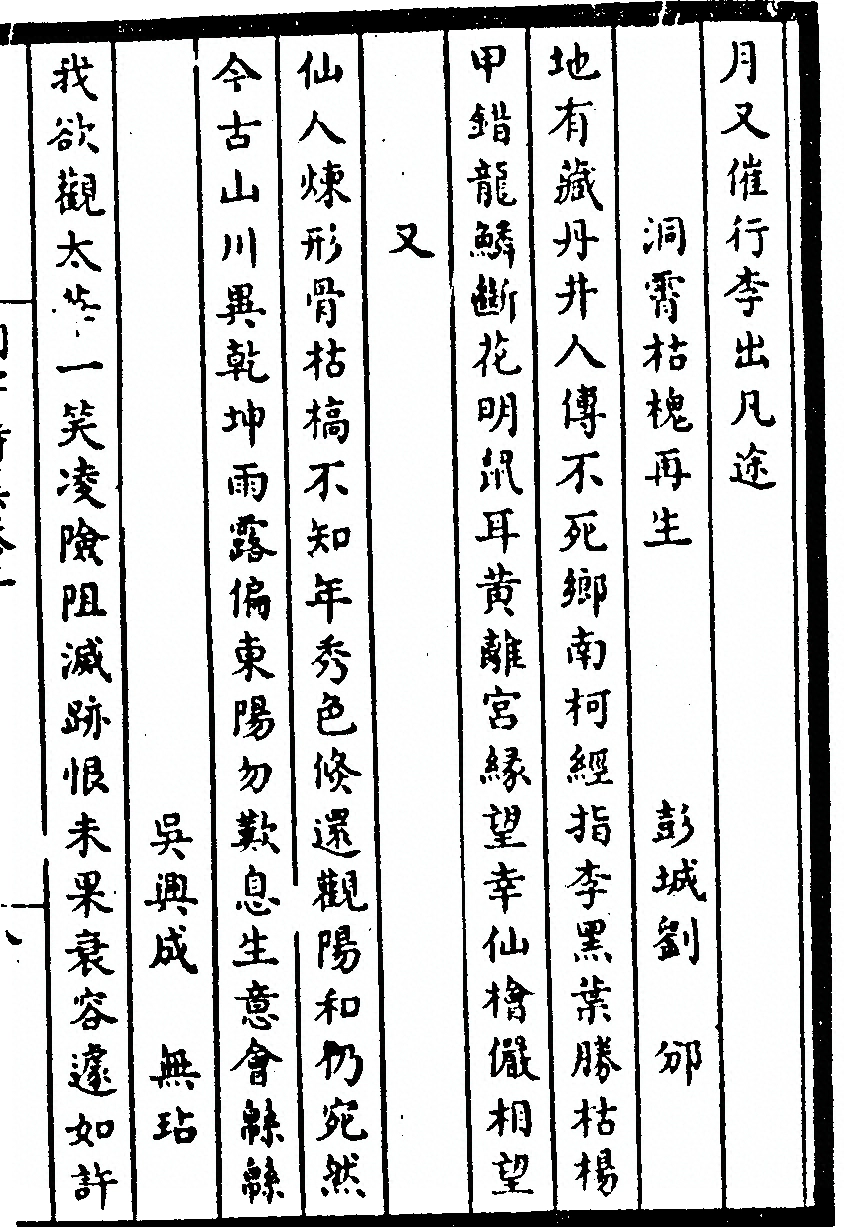 月又催行李出凡途
洞霄枯槐再生　彭城劉　邠
地有藏丹井人傳不死鄉南柯經指李黑葉勝枯楊
甲錯龍鱗斷花明鼠耳黄離宮緣望幸仙檜儼相望
又
仙人煉形骨枯槁不知年秀色倐還觀陽和仍宛然
今古山川異乾坤雨露偏東陽勿歎息生意會緜緜
吳興成　無玷
我欲觀太一笑凌險阻滅跡恨未果衰容遽如許